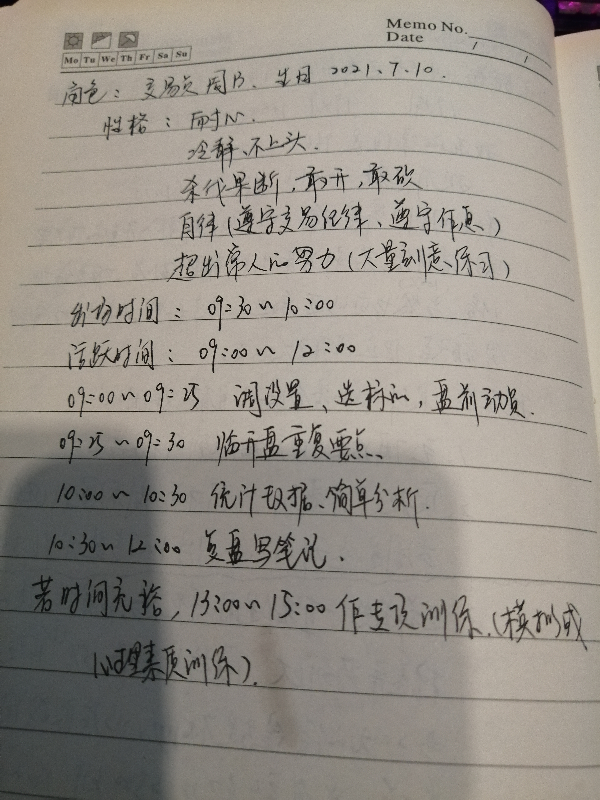 Memo No.
Mo Tu We Th Fr Sa Su
Date / /
角色：交易员周B. 生日 2021.7.10.
性格：耐心.
冷静、不上头.
杀伐果断，敢开，敢砍
自律（遵守交易纪律、遵守作息）
超出常人的努力（大量刻意练习）
出场时间：09:30~10:00
活跃时间：09:00~12:00
09:00~09:25 调设置、选标的，盘前动员.
09:25~09:30 临开盘重复要点、
10:00~10:30 统计数据、简单分析.
10:30~12:00 复盘写笔记.
若时间充裕，13:00~15:00 作专项训练.（模拟或
心理素质训练）.